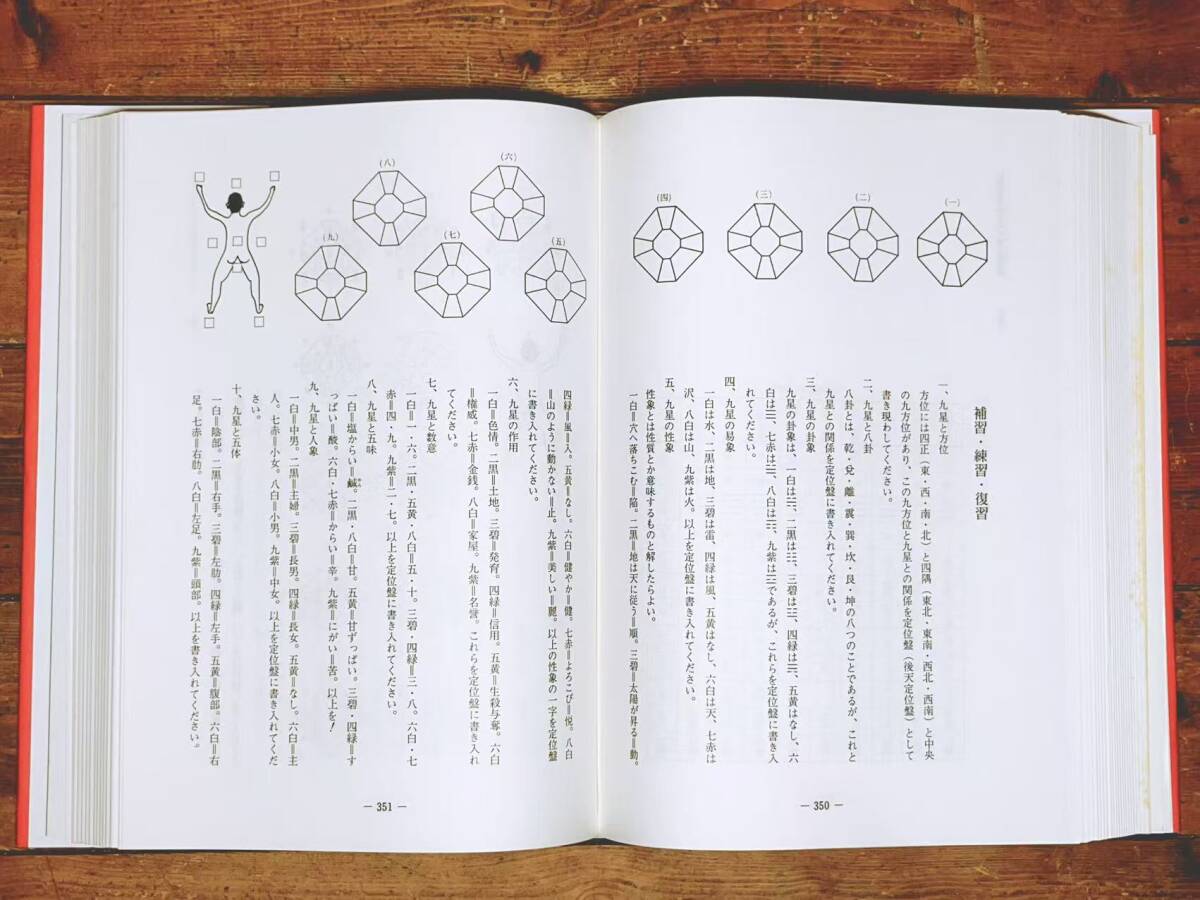 (一)
(二)
(三)
(四)
補習・練習・復習
一、九星と方位
方位には四正(東・西・南・北)と四隅(東北・東南・西北・西南)と中央
の九方位があり、この九方位と九星との関係を定位盤(後天定位盤)として
書き現わしてください。
二、九星と八卦
八卦とは、乾・兌・離・震・巽・坎・艮・坤の八つのことであるが、これと
九星との関係を定位盤に書き入れてください。
三、九星の卦象
九星の卦象は、一白は☵、二黒は☷、三碧は☳、四緑は☴、五黄はなし、六
白は☰、七赤は☱、八白は☶、九紫は☲であるが、これらを定位盤に書き入
れてください。
四、九星の易象
一白は水、二黒は地、三碧は雷、四緑は風、五黄はなし、六白は天、七赤は
沢、八白は山、九紫は火。以上を定位盤に書き入れてください。
五、九星の性象
性象とは性質とか意味するものと解したらよい。
一白＝穴へ落ちこむ＝陥。二黒＝地は天に従う＝順。三碧＝太陽が昇る＝動。
— 350 —
(五)
(六)
(七)
(八)
(九)
四緑＝風＝入。五黄＝なし。六白＝健やか＝健。七赤＝よろこび＝悦。八白
＝山のように動かない＝止。九紫＝美しい＝麗。以上の性象の一字を定位盤
に書き入れてください。
六、九星の作用
一白＝色情。二黒＝土地。三碧＝発育。四緑＝信用。五黄＝生殺与奪。六白
＝権威。七赤＝金銭。八白＝家屋。九紫＝名誉。これらを定位盤に書き入れ
てください。
七、九星と数意
一白＝一・六。二黒・五黄・八白＝五・十。三碧・四緑＝三・八。六白・七
赤＝四・九。九紫＝二・七。以上を定位盤に書き入れてください。
八、九星と五味
一白＝塩からい＝鹹。二黒・八白＝甘。五黄＝甘ずっぱい。三碧・四緑＝す
っぱい＝酸。六白・七赤＝からい＝辛。九紫＝にがい＝苦。以上を！
九、九星と人象
一白＝中男。二黒＝主婦。三碧＝長男。四緑＝長女。五黄＝なし。六白＝主
人。七赤＝小女。八白＝小男。九紫＝中女。以上を定位盤に書き入れてくだ
さい。
十、九星と五体
一白＝陰部。二黒＝右手。三碧＝左肋。四緑＝左手。五黄＝腹部。六白＝右
足。七赤＝右肋。八白＝左足。九紫＝頭部。以上を書き入れてください。
— 351 —